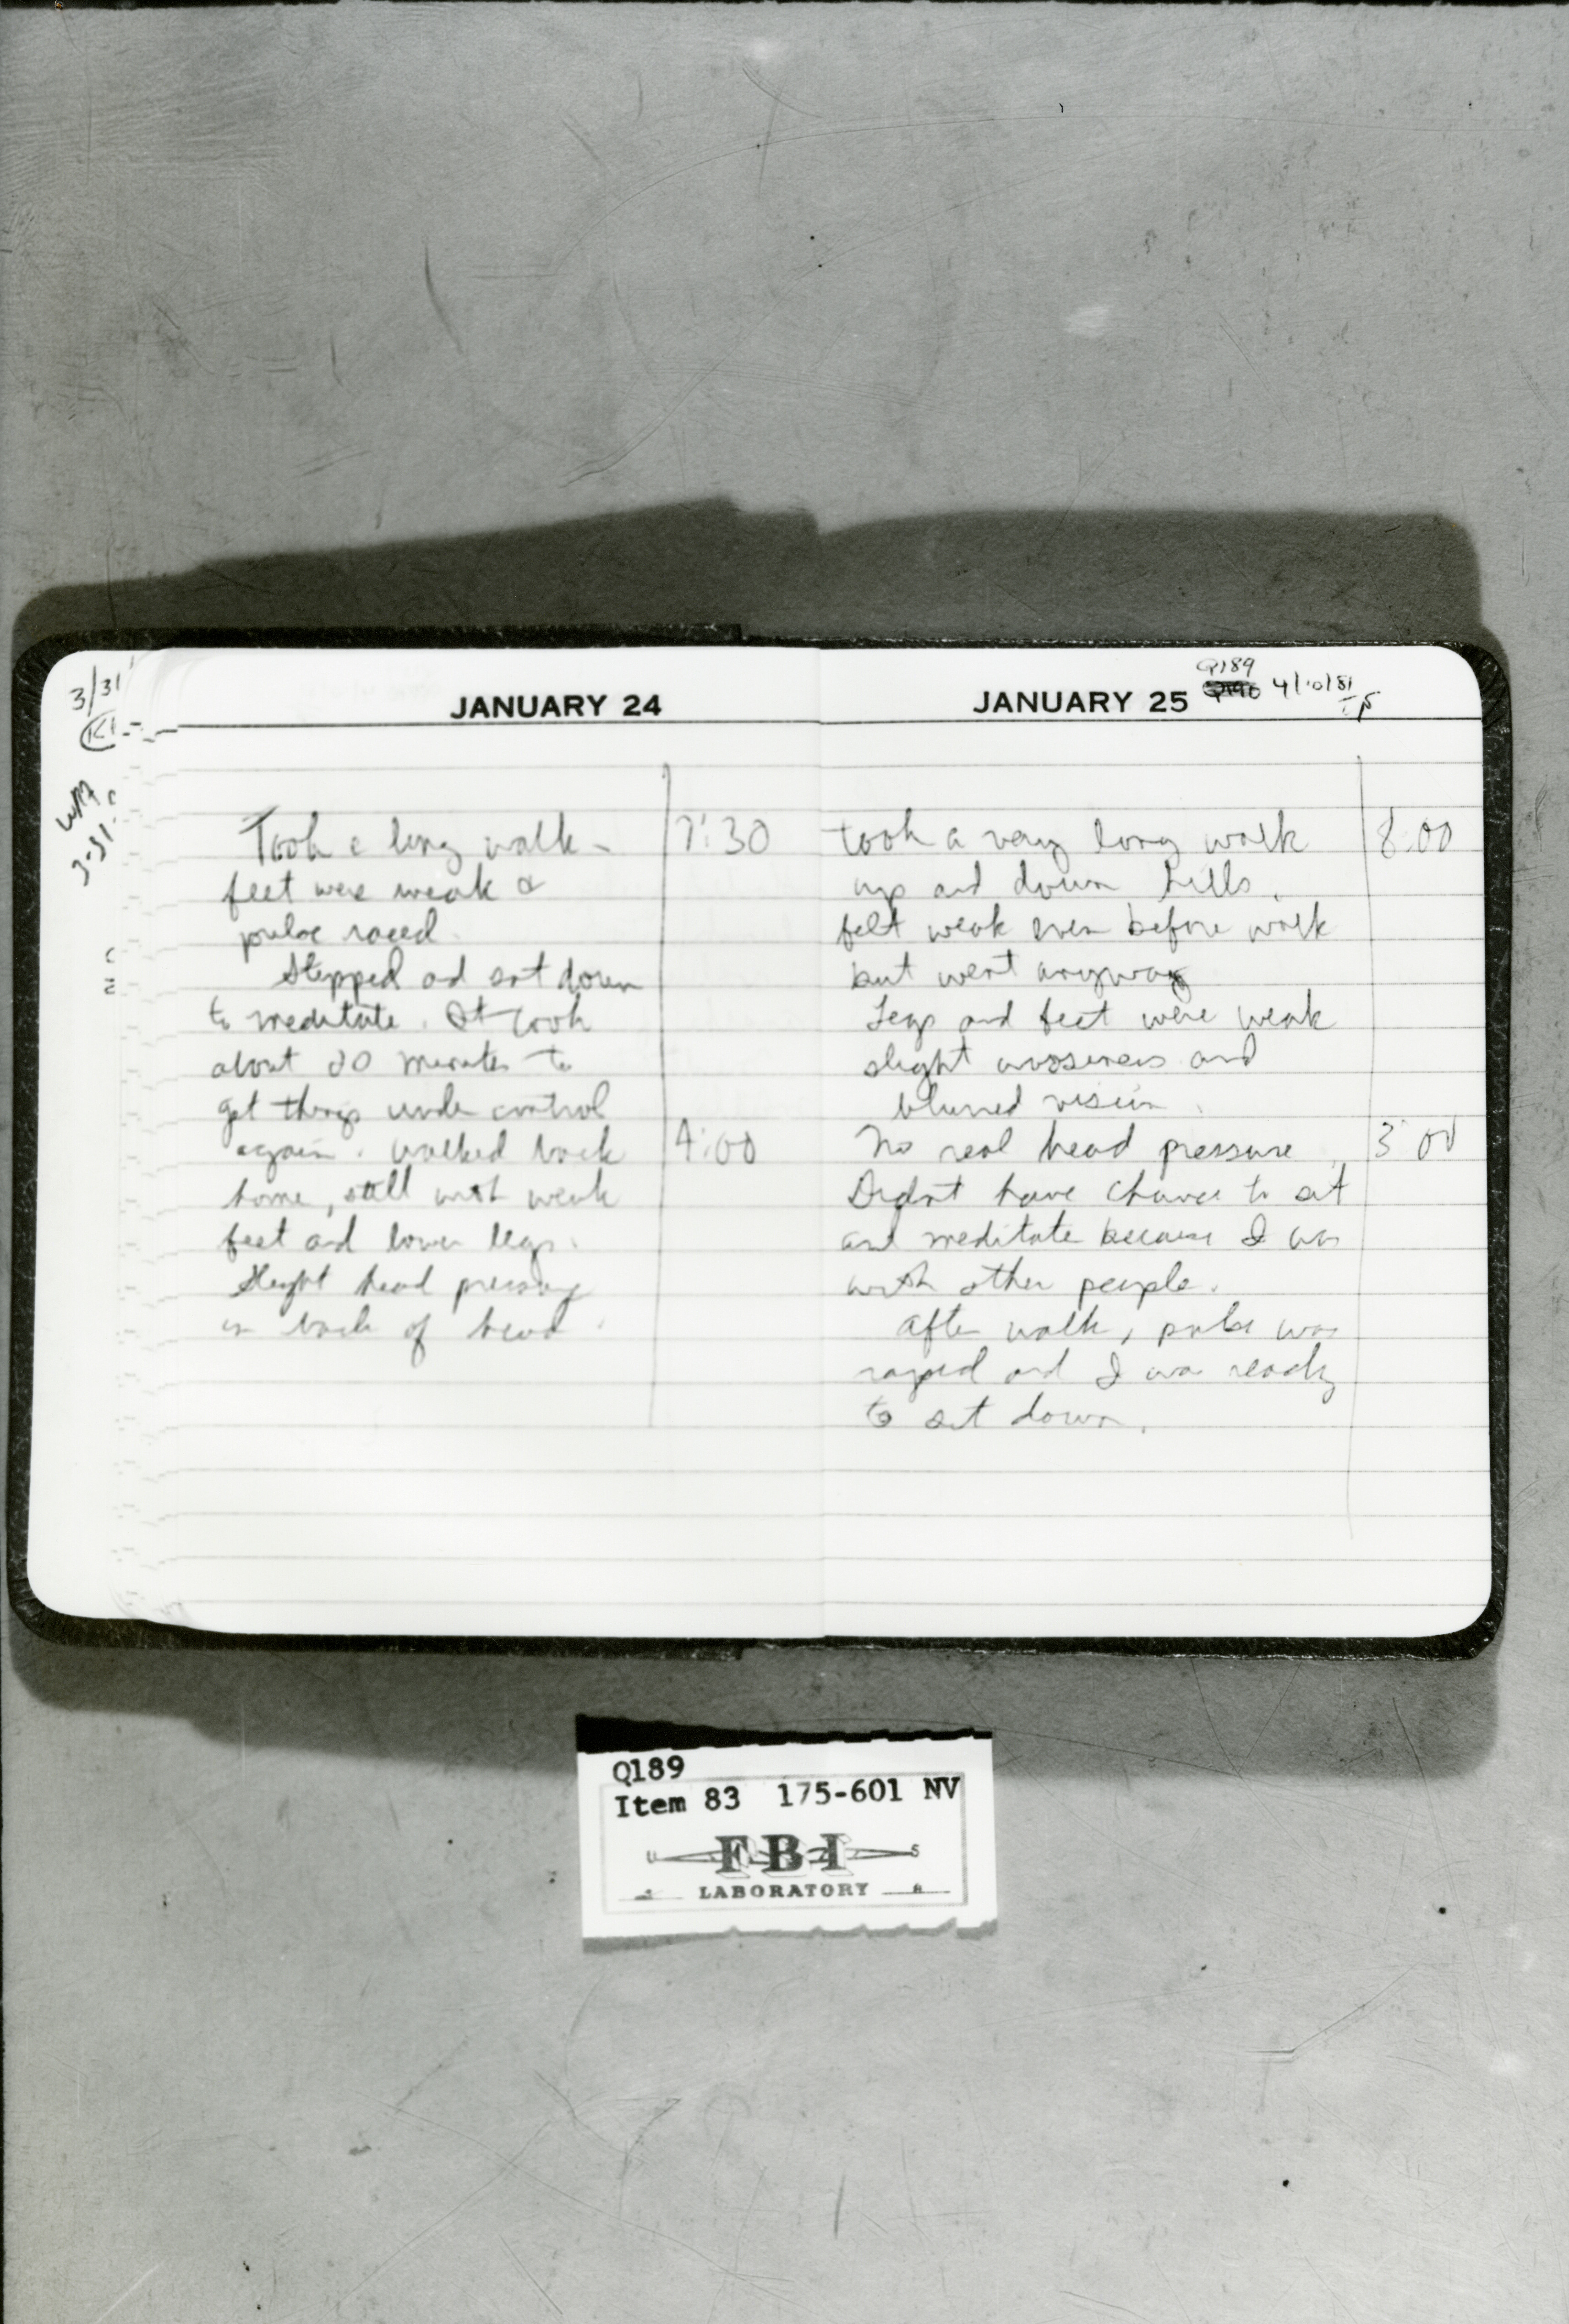 3/31
WM
3-31-
JANUARY 24
Took a long walk - 7:30
feet were weak &
pulse raced
Stopped and sat down
to meditate. It took
about 20 minutes to
get things under control
again. walked back 4:00
home, still with weak
feet and lower legs.
Slight head pressure
in back of head.
JANUARY 25
Q189
Q190 4/10/81
took a very long walk 8:00
up and down hills.
felt weak even before walk
but went anyway
Legs and feet were weak
slight wooziness and
blurred vision.
No real head pressure, 3:00
Didn't have chance to sit
and meditate because I was
with other people.
After walk, pulse was
rapid and I was ready
to sit down.
Q189
Item 83 175-601 NV
U S
FBI
LABORATORY